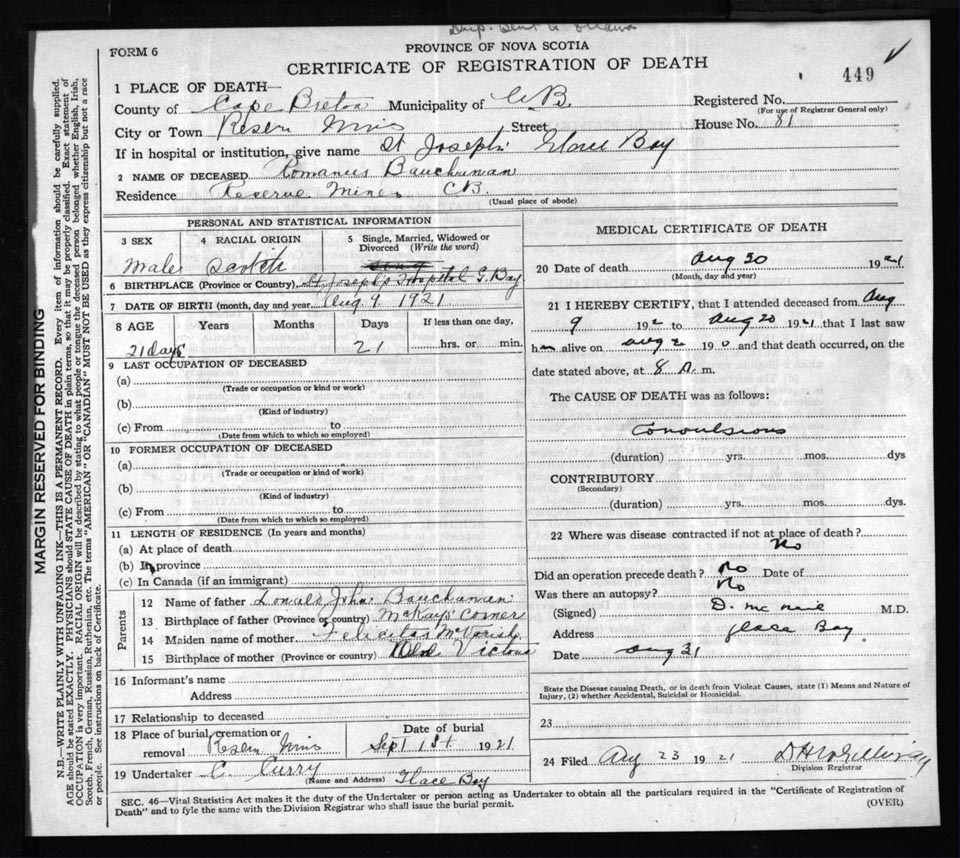 FORM 6
PROVINCE OF NOVA SCOTIA
CERTIFICATE OF REGISTRATION OF DEATH
449
1 PLACE OF DEATH—
County of Cape Breton Municipality of C.B. Registered No.
(For use of Registrar General only)
City or Town Street House No. 81
If in hospital or institution, give name St Joseph Glace Bay
2 NAME OF DECEASED Romanus Bauchanan
Residence Reserve Mines CB.
(Usual place of abode)
PERSONAL AND STATISTICAL INFORMATION
3 SEX
4 RACIAL ORIGIN
5 Single, Married, Widowed or Divorced (Write the word)
Male Scotch
6 BIRTHPLACE (Province or Country) St Joseph's Hospital G. Bay
7 DATE OF BIRTH (month, day and year) Aug 9 1921
8 AGE Years Months Days If less than one day,
21 days 21 hrs. or min.
9 LAST OCCUPATION OF DECEASED
(a)
(Trade or occupation or kind or work)
(b)
(Kind of industry)
(c) From to
(Date from which to which so employed)
10 FORMER OCCUPATION OF DECEASED
(a)
(Trade or occupation or kind of work)
(b)
(Kind of industry)
(c) From to
(Date from which to which so employed)
11 LENGTH OF RESIDENCE (In years and months)
(a) At place of death
(b) In province
(c) In Canada (if an immigrant)
Parents
12 Name of father Donald John Bauchanan
13 Birthplace of father (Province or country) McKay's Corner
14 Maiden name of mother Felicitas
15 Birthplace of mother (Province or country) Victoria
16 Informant's name
Address
17 Relationship to deceased
18 Place of burial, cremation or removal
Date of burial
Sept 1st 1921
19 Undertaker C. Curry Glace Bay
(Name and Address)
MEDICAL CERTIFICATE OF DEATH
20 Date of death Aug 30 1921
(Month, day and year)
21 I HEREBY CERTIFY, that I attended deceased from Aug
9 192 to Aug 30 1921 that I last saw
h alive on Aug 19 and that death occurred, on the
date stated above, at 8 A. m.
The CAUSE OF DEATH was as follows:
Convulsions
(duration) yrs. mos. dys
CONTRIBUTORY
(Secondary)
(duration) yrs. mos. dys.
22 Where was disease contracted if not at place of death?
No
Did an operation precede death? No Date of
Was there an autopsy? No
(Signed) D. M.D.
Address Glace Bay
Date Aug 31
State the Disease causing Death, or in death from Violent Causes, state (1) Means and Nature of
Injury, (2) whether Accidental, Suicidal or Homicidal.
23
24 Filed Aug 23 1921
Division Registrar
SEC. 46—Vital Statistics Act makes it the duty of the Undertaker or person acting as Undertaker to obtain all the particulars required in the "Certificate of Registration of
Death" and to fyle the same with the Division Registrar who shall issue the burial permit.
(OVER)
MARGIN RESERVED FOR BINDING
N.B.—WRITE PLAINLY WITH UNFADING INK—THIS IS A PERMANENT RECORD. Every item of information should be carefully supplied.
AGE should be stated EXACTLY. PHYSICIANS should STATE CAUSE OF DEATH in plain terms, so that it may be properly classified. Exact statement of
OCCUPATION is very important. RACIAL ORIGIN will be described by stating to what people or tongue the deceased person belonged whether English, Irish,
Scotch, French, German, Russian, Ruthenian, etc. The terms "AMERICAN" OR "CANADIAN" MUST NOT BE USED as they express citizenship but not a race
or people. See instructions on back of Certificate.